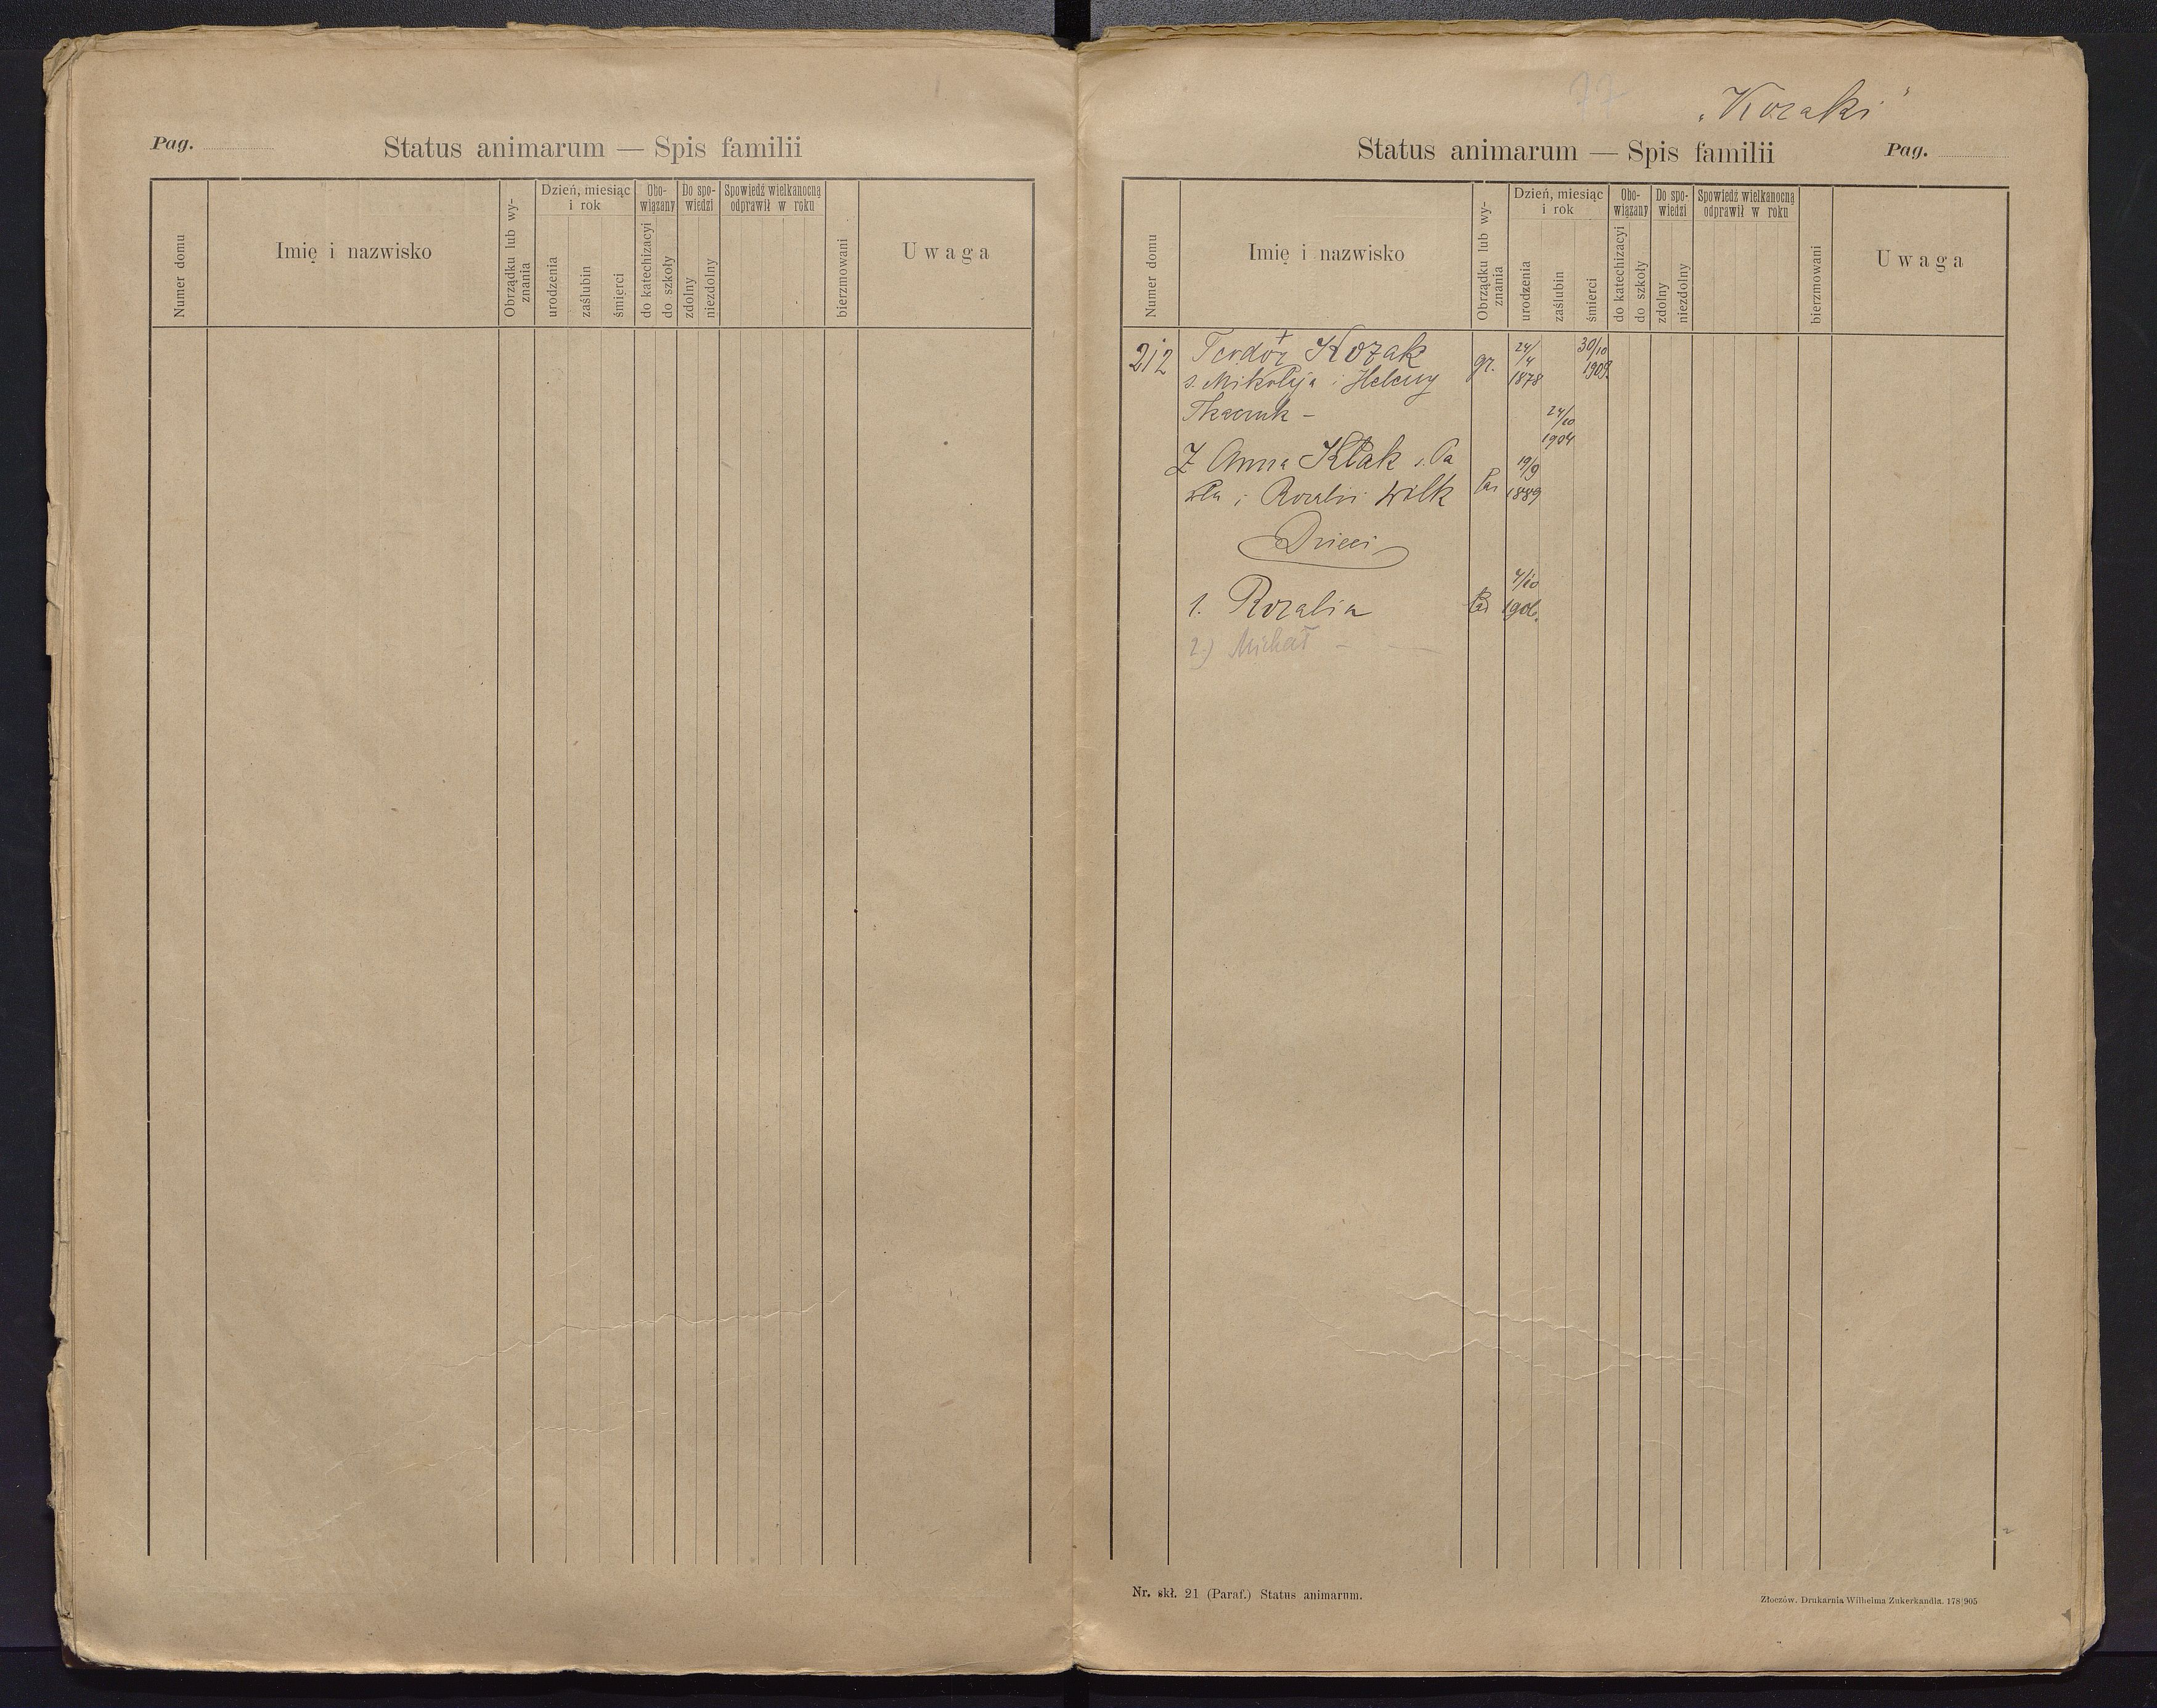 Pag.
Status animarum — Spis familii
Numer domu
Imię i nazwisko
Obrządku lub wy-
znania
Dzień, miesiąc
i rok
urodzenia
zaślubin
śmierci
Obo-
wiązany
do katechizacyi
do szkoły
Do spo-
wiedzi
zdolny
niezdolny
Spowiedź wielkanocną
odprawił w roku
bierzmowani
Uwaga
77
"Kozaki"
Status animarum — Spis familii
Pag.
Numer domu
Imię i nazwisko
Obrządku lub wy-
znania
Dzień, miesiąc
i rok
urodzenia
zaślubin
śmierci
Obo-
wiązany
do katechizacyi
do szkoły
Do spo-
wiedzi
zdolny
niezdolny
Spowiedź wielkanocną
odprawił w roku
bierzmowani
Uwaga
212 Teodor Kozak gr. 24/4 1878 30/10 1909.
s. Mikołaja i Heleny
Tkaczuk – 24/10 1904
Ż Anna Kłak c. Pa
wła i Rozalii Wilk łac 19/9 1889
Dzieci
1. Rozalia łac 4/10 1906.
2.) Michał –
Nr. skł. 21 (Paraf.) Status animarum.
Złoczów. Drukarnia Wilhelma Zukerkandla. 178|905